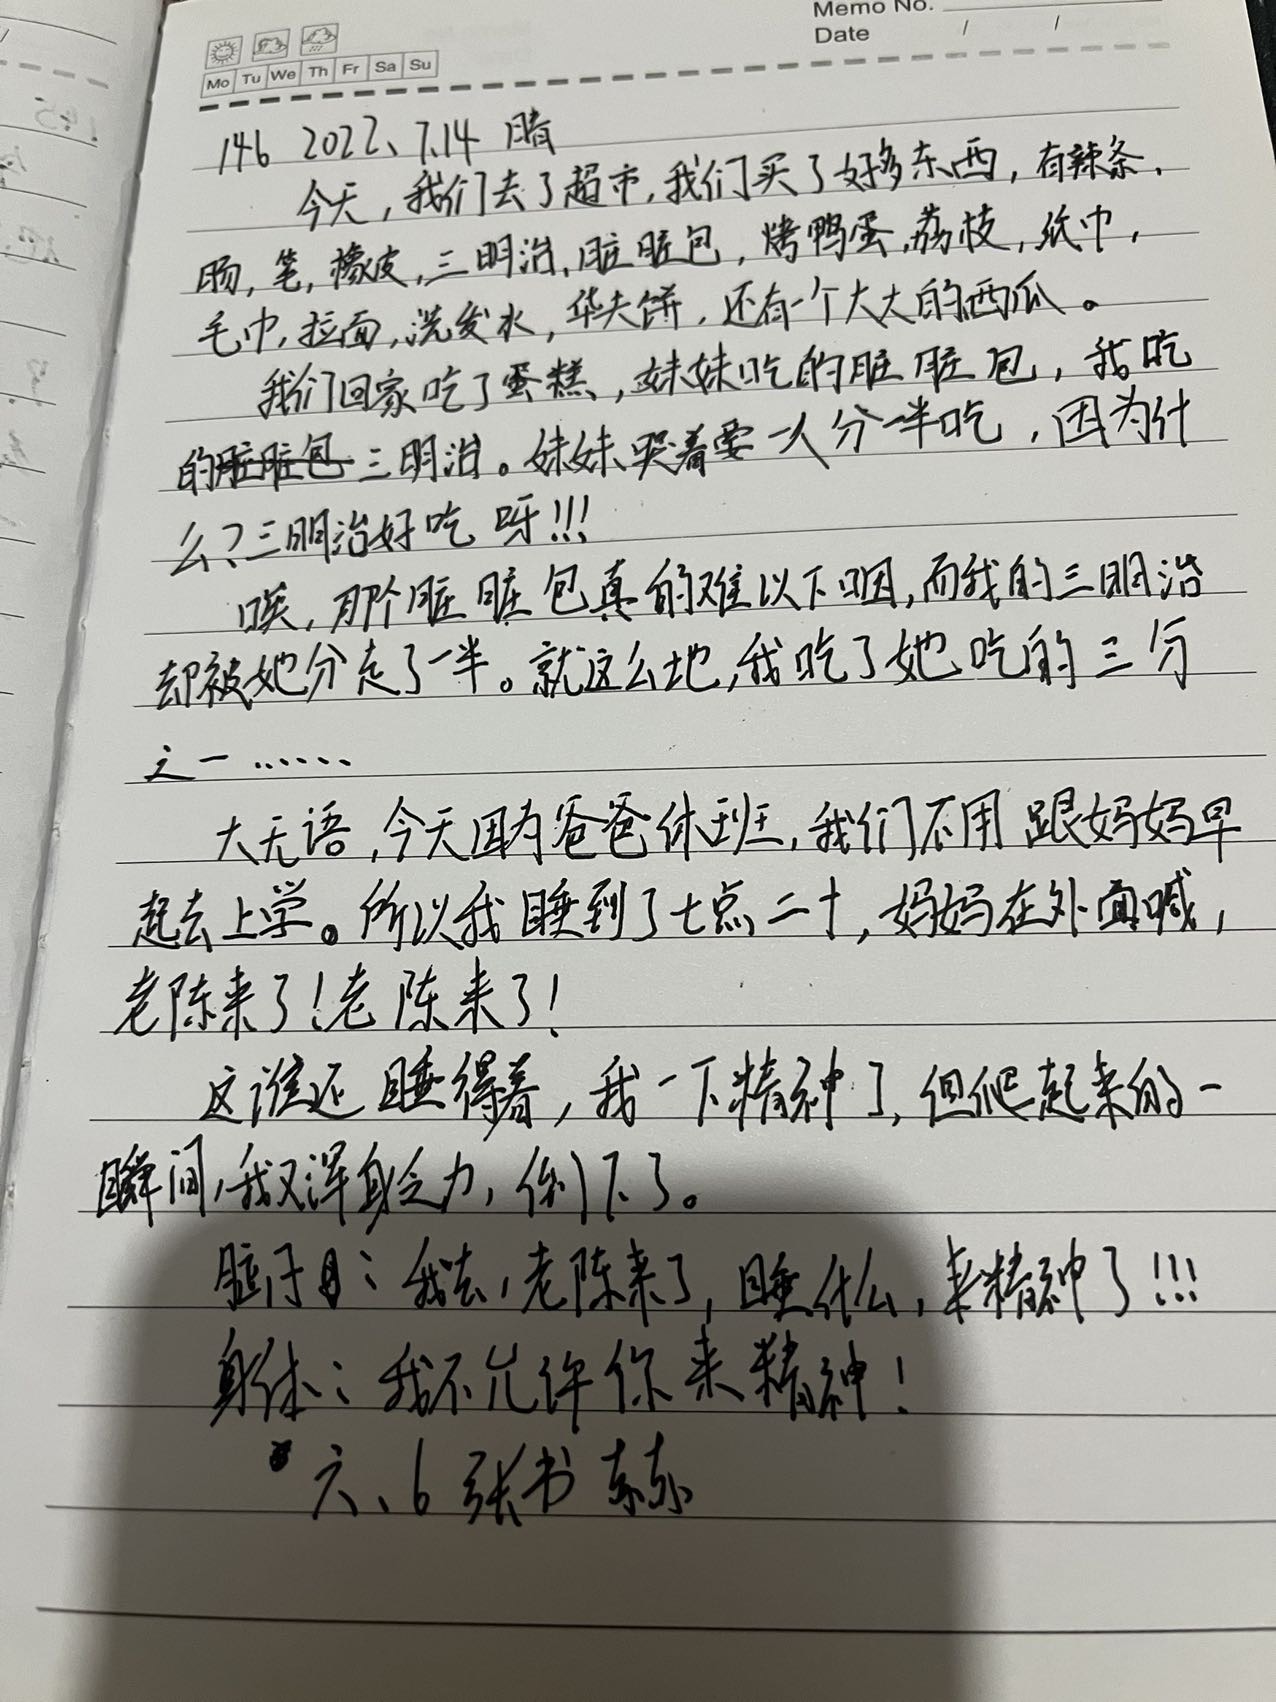 Memo No.
Date / /
Mo Tu We Th Fr Sa Su
146 2022、7.14 晴
今天，我们去了超市，我们买了好多东西，有辣条，
肠，笔，橡皮，三明治，脏脏包，烤鸭蛋，荔枝，纸巾，
毛巾，拉面，洗发水，华夫饼，还有一个大大的西瓜。
我们回家吃了蛋糕，妹妹吃的脏脏包，我吃
的脏脏包三明治。妹妹哭着要一人分一半吃，因为什
么？三明治好吃呀!!!
唉，那个脏脏包真的难以下咽，而我的三明治
却被她分走了一半。就这么地，我吃了她吃的三分
之一……
大无语，今天因为爸爸休班，我们不用跟妈妈早
起去上学。所以我睡到了七点二十，妈妈在外面喊，
老陈来了！老陈来了！
这谁还睡得着，我一下精神了，但爬起来的一
瞬间，我又浑身乏力，倒下了。
我去，老陈来了，睡什么，来精神了!!!
身体：我不允许你来精神！
六、6 张书